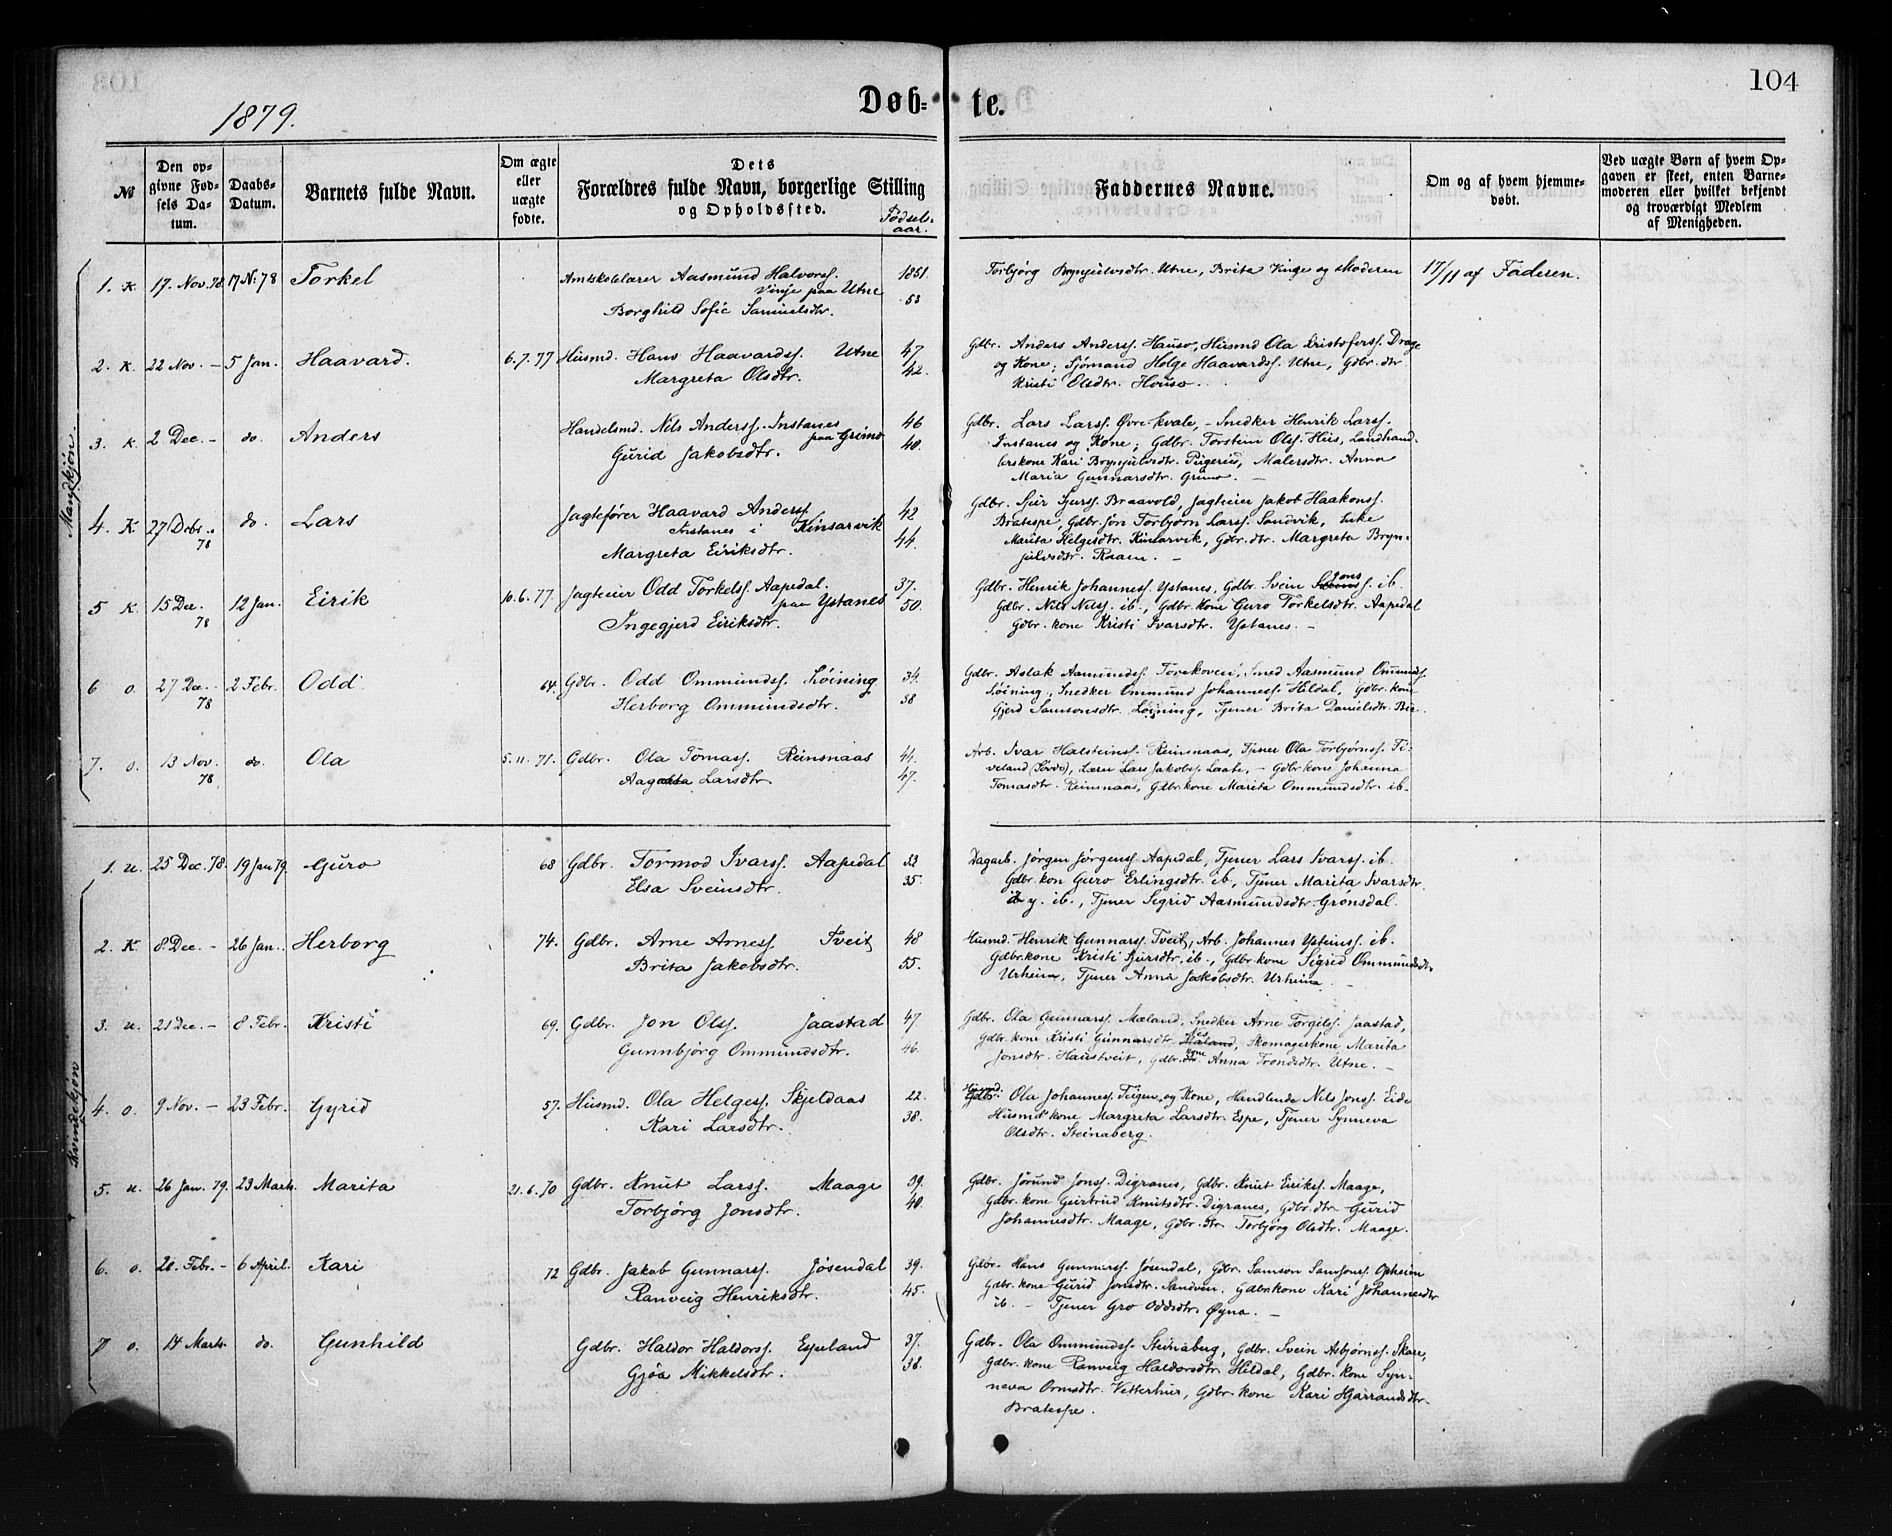 104
1879.
Døb- te.
№
Den opgivne Fødsels Datum.
Daabs-Datum.
Barnets fulde Navn.
Om ægte eller uægte fødte.
Dets Forældres fulde Navn, borgerlige Stilling og Opholdssted.
Fødselaar.
Faddernes Navne.
Om og af hvem hjemmedøbt.
Ved uægte Børn af hvem Opgaven er skeet, enten Barnemoderen eller hvilket bekjendt og troværdigt Medlem af Menigheden.
Mandkjøn.
1. K. 17. Nov. 78. 17 N: 78 Torkel Amtskolelærer Aasmund Halvorss. 1851. Torbjørg Brynjulvsdtr. Utne, Brita Kinge og Moderen 17/11 af Faderen.
Vinje paa Utne
Borghild Sofie Samuelsdtr. 53
2. K. 22 Nov. – 5 Jan. Haavard. 6.7.77 Husmd. Hans Haavardss. Utne 47. Gdbr. Anders Anderss. Hauso, Husmd Ola Kristoferss. Drage
Margreta Olsdtr. 42. og Kone; Sjømand Helge Haavardss. Utne, Gdbr. dtr
Kristi Olsdtr. Houso.
3. K. 2 Dec. – do. Anders Handelsmd. Nils Anderss. Instanes 46 Gdbr. Lars Larss. Øvre-Kvale, – Snedker Henrik Larss.
paa Grimo
Gurid Jakobsdtr. 40. Instanes og Kone; Gdbr. Torstein Olss. Hus, Landhandlerskone Kari Brynjulvsdtr. Pigerud, Malersdtr. Anna
Maria Gunnarsdtr. Grimo. –
4. K 27 Decbr. 78 do. Lars Jagtefører Haavard Anderss. 42 Gdbr. Sjur Sjurss. Braavold, Jagteier Jakob Haakonss.
Instanes i Kinsarvik
Margreta Eiriksdtr. 44. Bratespe, Gdbr. søn Torbjørn Larss. Sandvik, Enke
Marita Helgesdtr. Kinsarvik, Gdbr. dtr. Margreta Brynjulvsdtr. Raaen. –
5 K. 15 Dec. 78 12 Jan. Eirik 10.6.77. Jagteier Odd Torkelss. Aapedal. 37. Gdbr. Henrik Johanness. Ystanes, Gdbr. Svein Jonss. ib.
paa Ystanes 50. Gdbr. Nils Nilss. ib., Gdbr. kone Guro Torkelsdtr. Aapedal
Ingegjerd Eiriksdtr. Gdbr. kone Kristi Ivarsdtr. Ystanes. –
6 o. 27 Dec. 78 2 Febr. Odd 64. Gdbr. Odd Ommundss. Løining 34. Gdbr. Aslak Aamundss. Smed Aasmund Ommundss.
Herborg Ommundsdtr. 38 Løining, Snedker Ommund Johanness. Hildal, Gdbr. kone
Gjerd Samsonsdtr. Løining, Tjener Brita Danielsdtr.
7. o. 13 Nov. 78 do. Ola 5.11.71. Gdbr. Ola Tomass. Reinsnaas 44. Arb. Ivar Halsteinss. Reinsnaas, Tjener Ola Torbjørnss.
Aagata Larsdtr 47. Lærer Lars Jakobss. Laate, – Gdbr kone Johanna
Tomasdtr. Reinsnaas, Gdbr. kone Marita Ommundsdtr. ib.
Kvindekjøn
1. u. 25 Dec. 78. 19 Jan 79. Guro 68 Gdbr. Tormod Ivarss. Aapedal 33 Dagarb. Jørgen Jørgenss. Aapedal, Tjener Lars Ivarss. ib.
Elsa Sveinsdtr. 35. Gdbr. kon Guro Erlingsdtr. ib, Tjener Marita Ivarsdtr.
y. ib., Tjener Sigrid Aasmundsdtr. Grønsdal.
2. K 8. Dec. – 26 Jan. Herborg 74. Gdbr. Arne Arness. Tveit 48 Husmd. Henrik Gunnarss. Tveit, Arb. Johannes Ysteinss. ib.
Brita Jakobsdtr. 55. Gdbr. kone Kristi Sjursdtr. ib., Gdbr. kone Sigrid Ommundsdtr.
Urheim, Tjener Anna Jakobsdtr. Urheim.
3. u. 21 Dec. – 8 Febr. Kristi 69. Gdbr. Jon Olss. Jaastad 47 Gdbr. Ola Gunnarss. Mæland, Snedker Arne Torgilss. Jaastad,
Gunnbjørg Ommundsdtr. 46. Gdbr. kone Kristi Gunnarsdtr. Skomagerkone Marita
Jonsdtr. Haustveit, Gdbr. kone Anna Trondsdtr. Utne. –
4. o. 9 Nov. – 23 Febr. Gyrid 57. Husmd. Ola Helgess. Skjeldaas 22. Husmd. Ola Johanness. Teigen og Kone, Handlende Nils Jonss. Eide
Kari Larsdtr. 38. Husmd. kone Margreta Larsdtr. Espe, Tjener Synneva
Olsdtr. Steinaberg.
5. u. 26 Jan. 79. 23 Marts. Marita 21.6.70 Gdbr. Knut Larss. Maage 39. Gdbr. Jørund Jonss. Digranes, Gdbr. Knut Eirikss. Maage,
Torbjørg Jonsdtr. 40. Gdbr. kone Geirtrud Knutsdtr. Digranes, Gdbr. dtr Gurid
Johannesdtr. Maage, Gdbr. dtr Torbjørg Olsdtr. Maage.
6. o. 20. Febr. – 6 April. Kari 72 Gdbr. Jakob Gunnarss. Jøsendal 39. Gdbr. Hans Gunnarss. Jøsendal, Gdbr. Samson Samsonss. Opheim
Ranveig Henriksdtr. 45. Gdbr. kone Gurid Jonsdtr. Sandven, Gdbr kone Kari Johannesdtr
ib. – Tjener Gro Oddsdtr. Øyna. –
7 o. 14 Marts. do. Gunhild Gdbr. Haldor Haldorss. Espeland 37. Gdbr. Ola Ommundss. Steinaberg, Gdbr. Svein Asbjørnss. Skare,
Gjøa Mikkelsdtr. 38. Gdbr. kone Ranveig Haldorsdtr. Hildal, Gdbr. kone Synneva Ormsdtr. Vetterhus, Gdbr. kone Kari Hjarrandsdtr.
Bratespe.